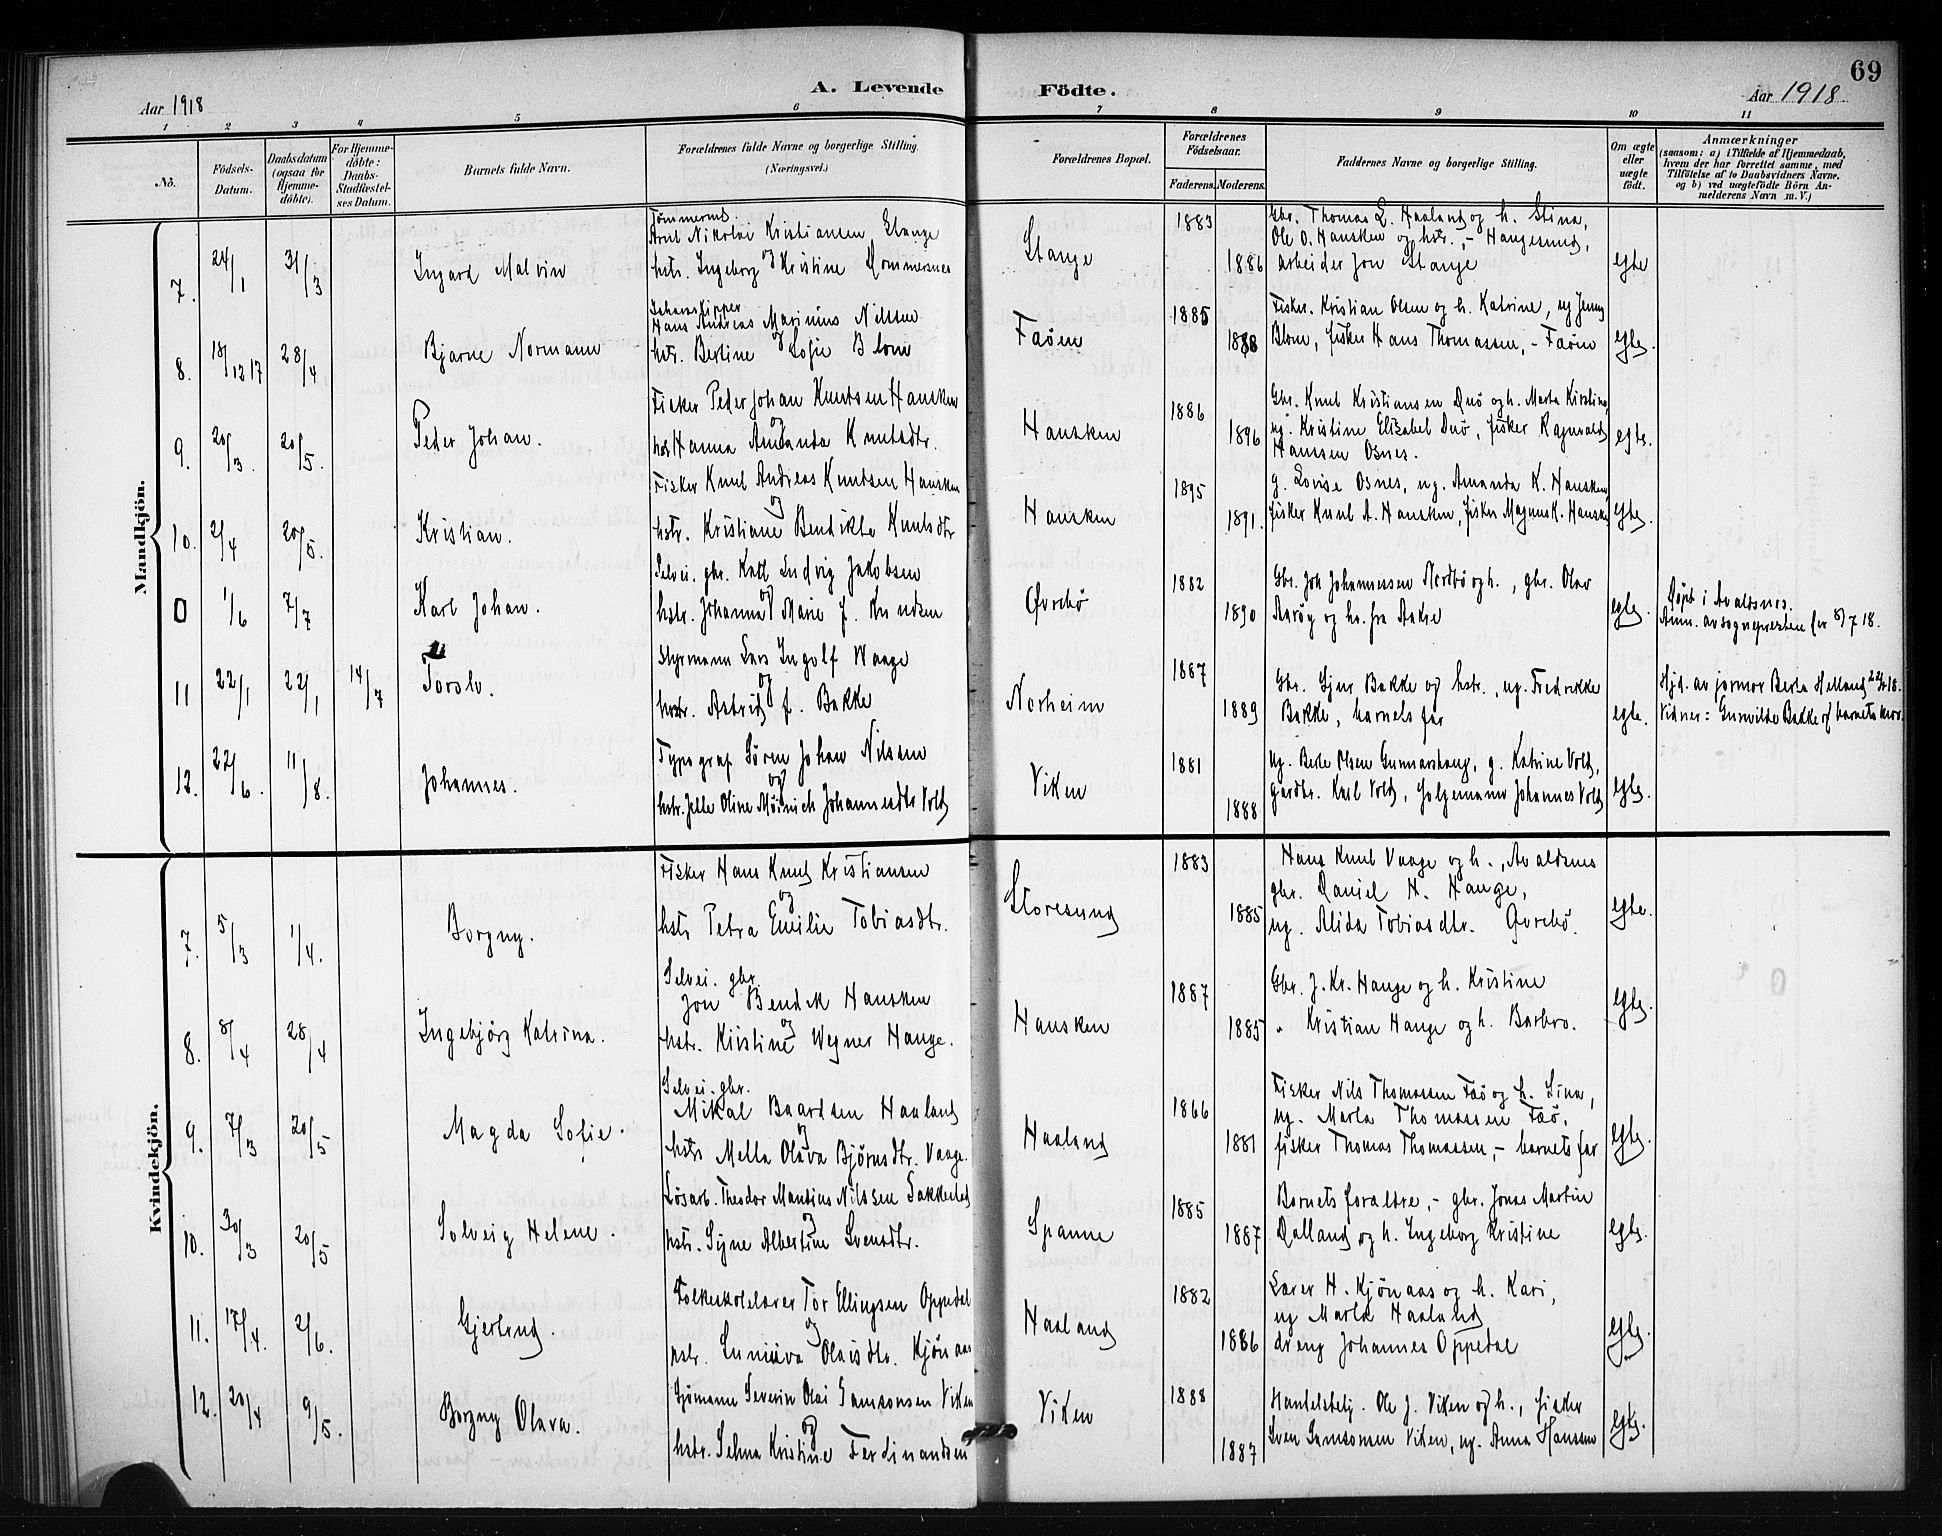 69
A. Levende Födte.
Aar 1918
Aar 1918
1 2 3 4 5 6 7 8 9 10 11
No.
Födsels-Datum.
Daabsdatum (ogsaa for Hjemme-döbte).
For Hjemme-döbte: Daabs-Stadfæstel-ses Datum.
Barnets fulde Navn.
Forældrenes fulde Navne og borgerlige Stilling. (Næringsvei.)
Forældrenes Bopæl.
Forældrenes Födselsaar.
Faderens. Moderens.
Faddernes Navne og borgerlige Stilling.
Om ægte eller uægte födt.
Anmærkninger
(saasom: a) i Tilfælde af Hjemmedaab, hvem der har forrettet samme, med Tilföielse af to Daabsvidners Navne, og b) ved uægtefödte Börn An-melderens Navn m. V.)
Mandkjön.
7. 24/1 31/3 Ingard Malvin
Tømmerms.
Arnt Nikolai Kristiansen Stange
og
hstr. Ingeborg Kristine Dommersnes
Stange 1883 1886
Gbr. Thomas L. Haaland og h. Stina,
Ole O. Hausken og hstr., - Haugesund,
arbeider Jon Stange
egte
8. 18/12 17 28/4 Bjarne Normann
Hans Andreas Marinius Nilsen
og
hstr. Bertine Sofie Blom
Faøen 1885 1888
Fisker. Kristian Olsen og h. Katrine, ug Jenny
Blom, fisker Hans Thomassen, - Faøen
egte.
9. 20/3. 20/5. Peder Johan.
Fisker Peder Johan Knutsen Hausken
og
Hanna Amanda Knutsdtr.
Hausken 1886 1896
Gbr. Knut Kristiansen Duø og h. Marta Kirstine,
ug. Kristine Elisabet Duø, fisker Ragnvald
Hanssen Osnes.
egte.
10. 2/4 20/5. Kristian.
Fisker Knut Andreas Knudsen Hausken
og
hstr. Kristiane Bendikte Knutsdtr
Hausken 1895 1891.
g. Lovise Osnes, ug. Amanda K. Hausken,
fisker Knut A. Hausken, fisker Magnus K. Hausken
egte.
0 1/6 7/7 Karl Johan.
Selvei. gbr. Karl Ludvig Jakobsen
og
hstr. Johanna Marie f. Knudsen
Øvrebø 1882 1890
Gbr. Joh Johannessen Nordbø og h., gbr. Olav
Aarøy og hs. fra Aakre
egte.
Døpt i Avaldsnes.
Ann. av sognepresten 8/7 18.
11 22/1 22/1 14/7 Torolv.
Styrmann Lars Ingolf Waage
og
hstr. Astrid f. Bakke
Norheim 1887 1889
Gbr. Sjur Bakke og hstr., ug. Fredrikke
Bakke, barnets far
egte.
Hjd. av jormor Berta Helland 22/1 18.
Vidner: Gunvilde Bakke og barnets mor.
12. 22/6. 11/8. Johannes.
Typograf Sören Johan Nilssen
og
hstr. Jelle Oline Mönnich Johannesdtr Vold
Viken 1881 1888
Ug. Berte Olsen Gunnarshaug, g. Katrine Vold,
gardbr. Karl Vold, Johannes Vold
egte.
Kvindekjön.
7. 5/3 1/4. Borgny.
Fisker Hans Knud Kristiansen
og
hstr Petra Emilie Tobiasdtr.
Storesund 1883 1885
Hans Knut Vaage og h., Avaldsnes
gbr. Daniel H. Hauge,
ug. Alida Tobiasdtr. Øvrebø.
egte.
8. 8/4 28/4 Ingebjörg Katrina.
Selvei. gbr.
Jon Bendik Hausken
og
hstr. Kristine Wegner Hauge.
Hausken 1887 1885
Gbr. J. Kr. Hauge og h. Kristine
" Kristian Hauge og h. Barbro.
egte.
9. 7/3 20/5 Magda Sofie.
Selvei. gbr.
Mikal Baardsen Haaland
og
hstr Mella Olava Björnsdtr. Vaage.
Haaland 1866 1881
Fisker Nils Thomassen Faø og h. Sina,
ug. Marta Thomassen Faø,
fisker Thomas Thomassen, - barnets far
egte.
10. 30/3 20/5 Solveig Helene.
Løsarb. Theodor Mandius Nilssen
og
hstr. Syne Albertine Svensdtr.
Spanne 1885 1887
Barnets foraldre, - gbr. Jonas Martin
Dalland og h. Ingeborg Kristine
egte.
11. 17/4. 2/6. Gjertrud.
Folkeskolelærer Tor Ellingsen Oppedal
og
hstr. Sunniva Olaisdtr. Kjönaas
Haaland 1882 1886
Lærer H. Kjönaas og h. Kari,
ug Marta Haaland
dreng Johannes Oppedal
egte.
12. 20/4 9/5. Borgny Olava.
Sjömann Severin Olai Samsonsen Viken
og
hstr. Selma Kristine Ferdinandsen
Viken 1888 1887
Handelsbetj. Ole J. Viken og h., fisker
Sven Samsonsen Viken, ug. Anna Hanssen
egte.